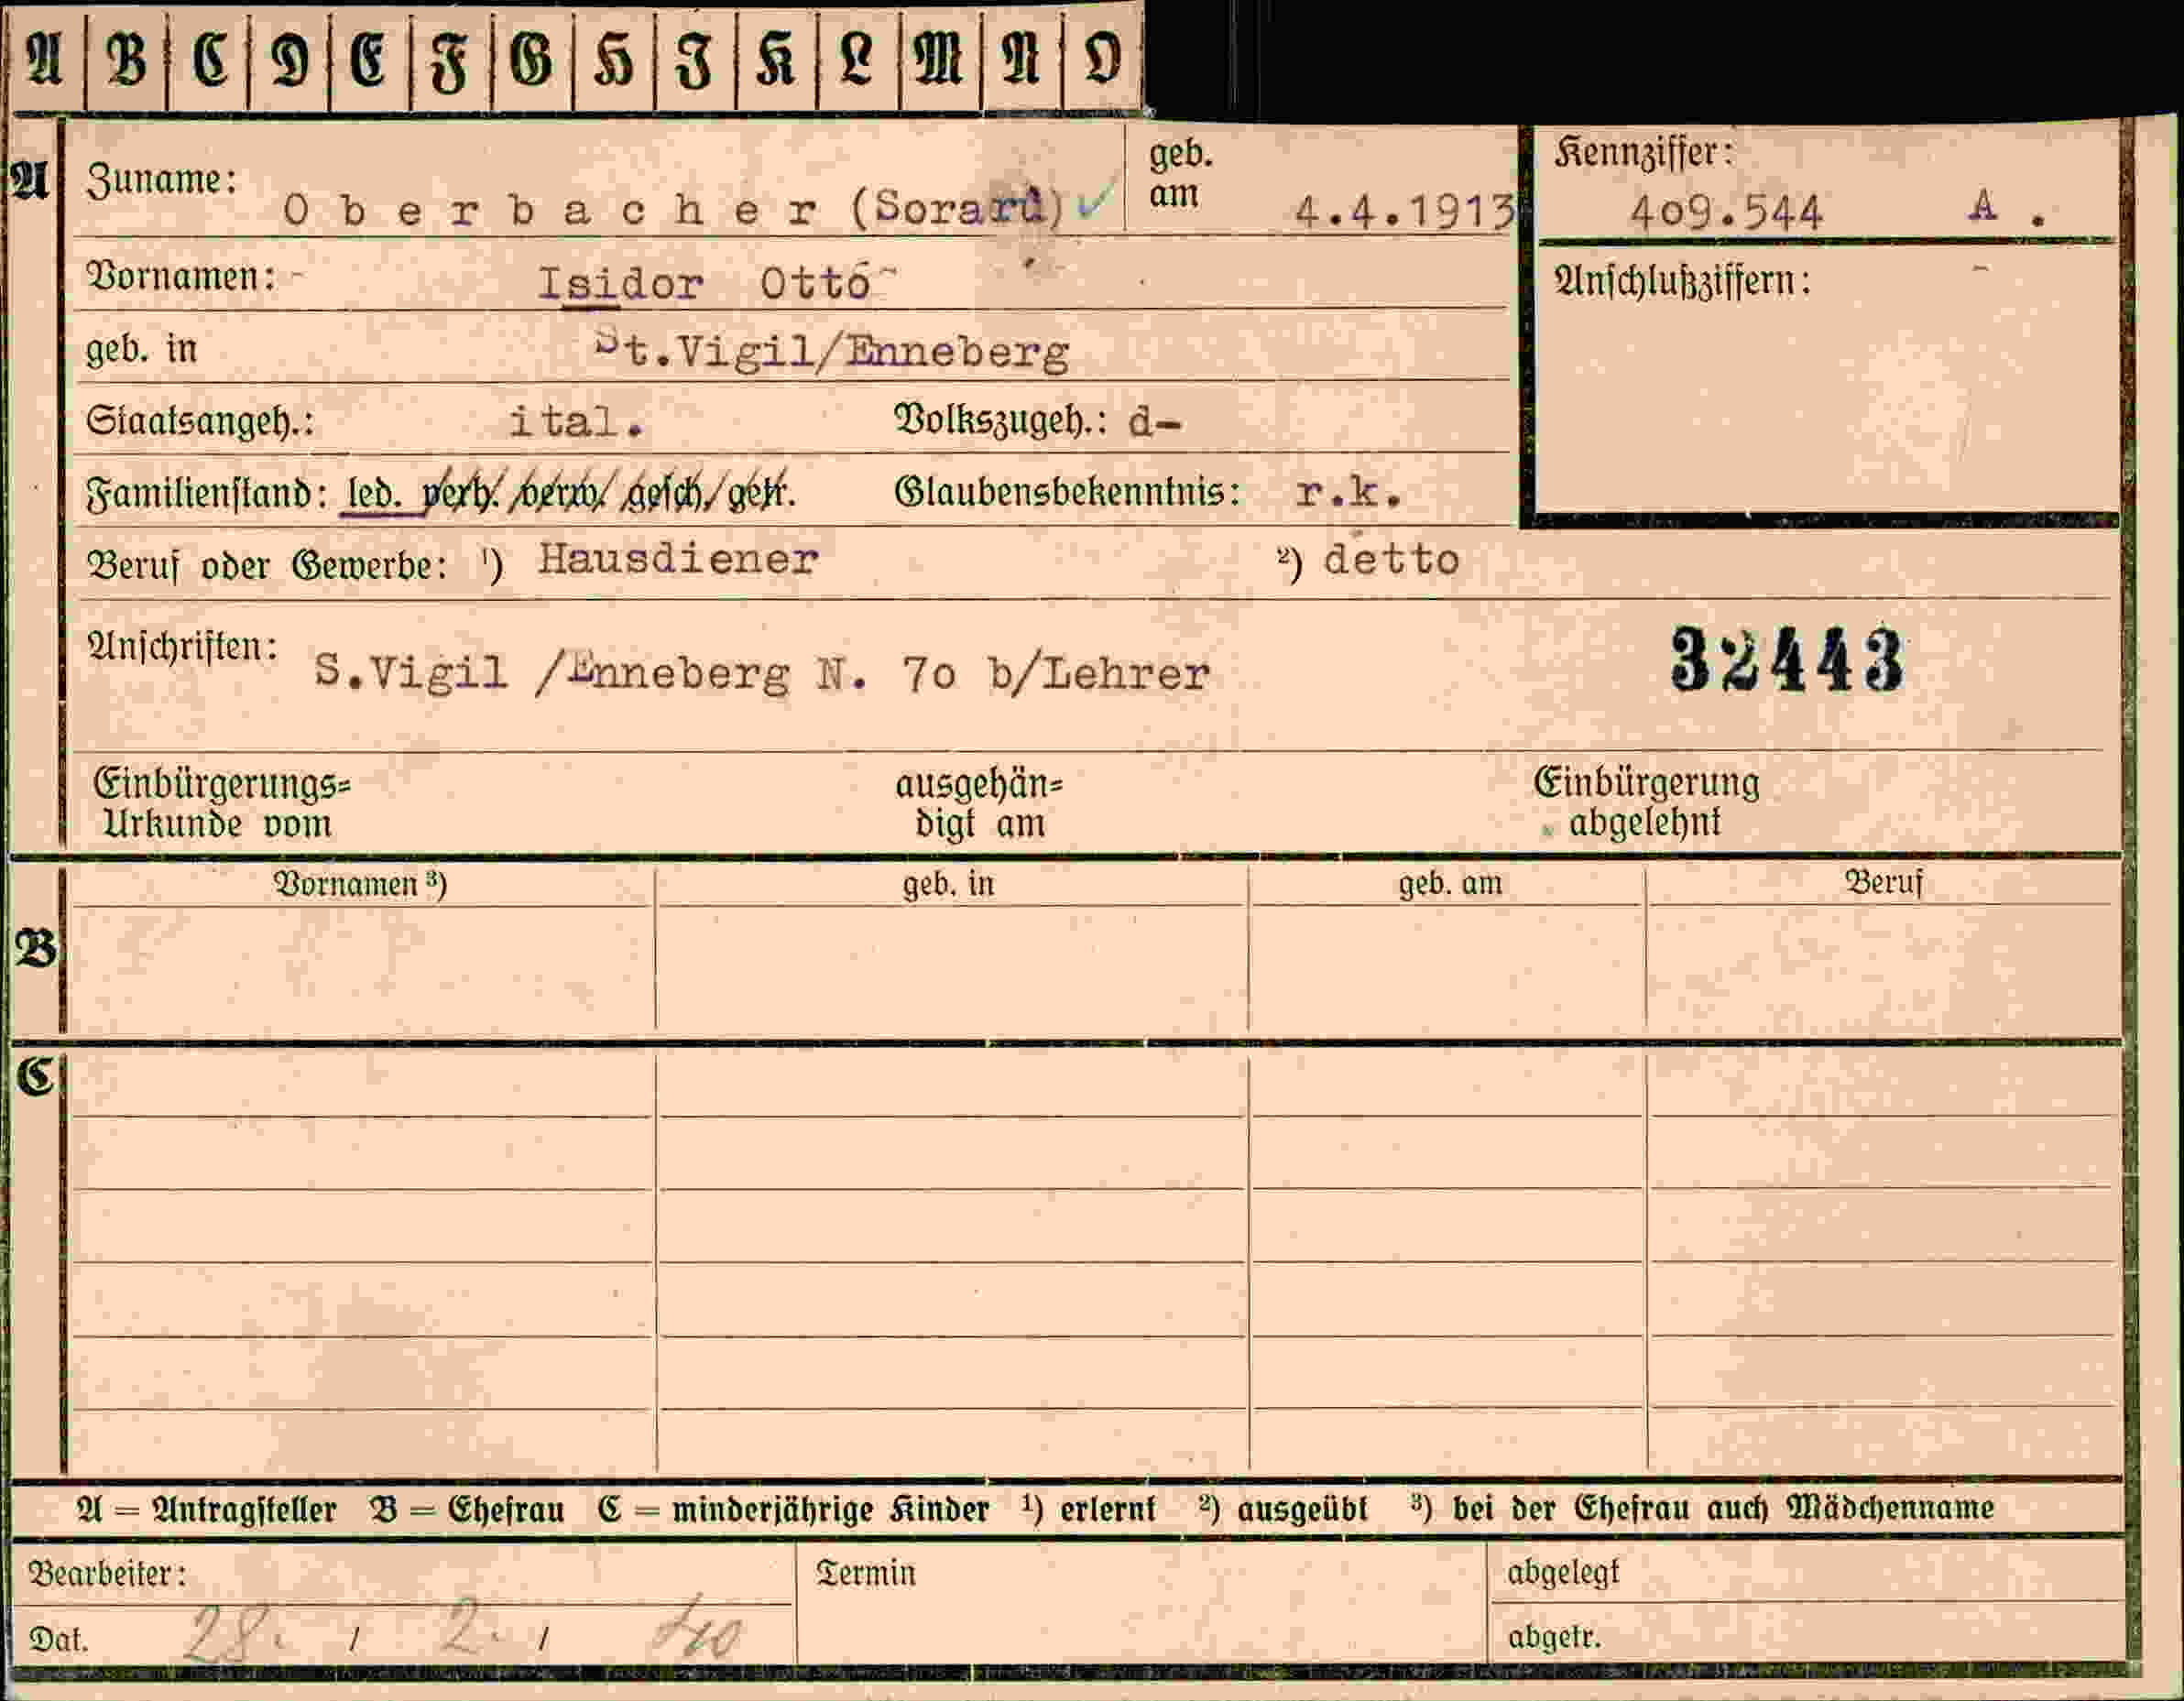 A B C D E F G H I K L M N O
A Zuname: Oberbacher (Sorarù) ✓ geb. am 4.4.1913 Kennziffer: 409.544 A.
Vornamen: - Isidor Otto Anschlußziffern: -
geb. in St.Vigil/Enneberg
Staatsangeh.: ital. Volkszugeh.: d-
Familienstand: led. verh. verw. gesch. getr. Glaubensbekenntnis: r.k.
Beruf oder Gewerbe: ¹) Hausdiener ²) detto
Anschriften: S.Vigil /Enneberg N. 7o b/Lehrer 32443
Einbürgerungs= ausgehän= Einbürgerung
Urkunde vom digt am abgelehnt
Vornamen ³) geb. in geb. am Beruf
B
C
A = Antragsteller B = Ehefrau C = minderjährige Kinder ¹) erlernt ²) ausgeübt ³) bei der Ehefrau auch Mädchenname
Bearbeiter: Termin abgelegt
Dat. 28. / 2. / 40 abgetr.